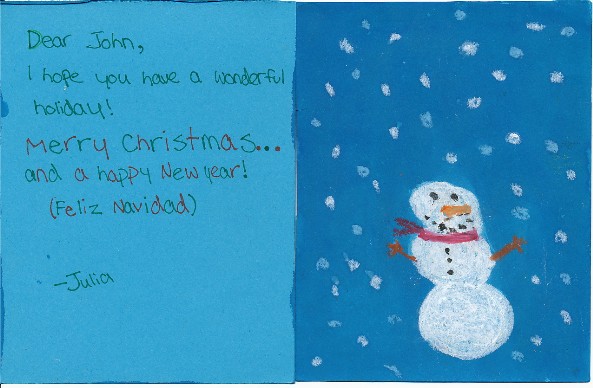 Dear John,
I hope you have a wonderful
holiday!
Merry Christmas...
and a happy New year!
(Feliz Navidad)
-Julia